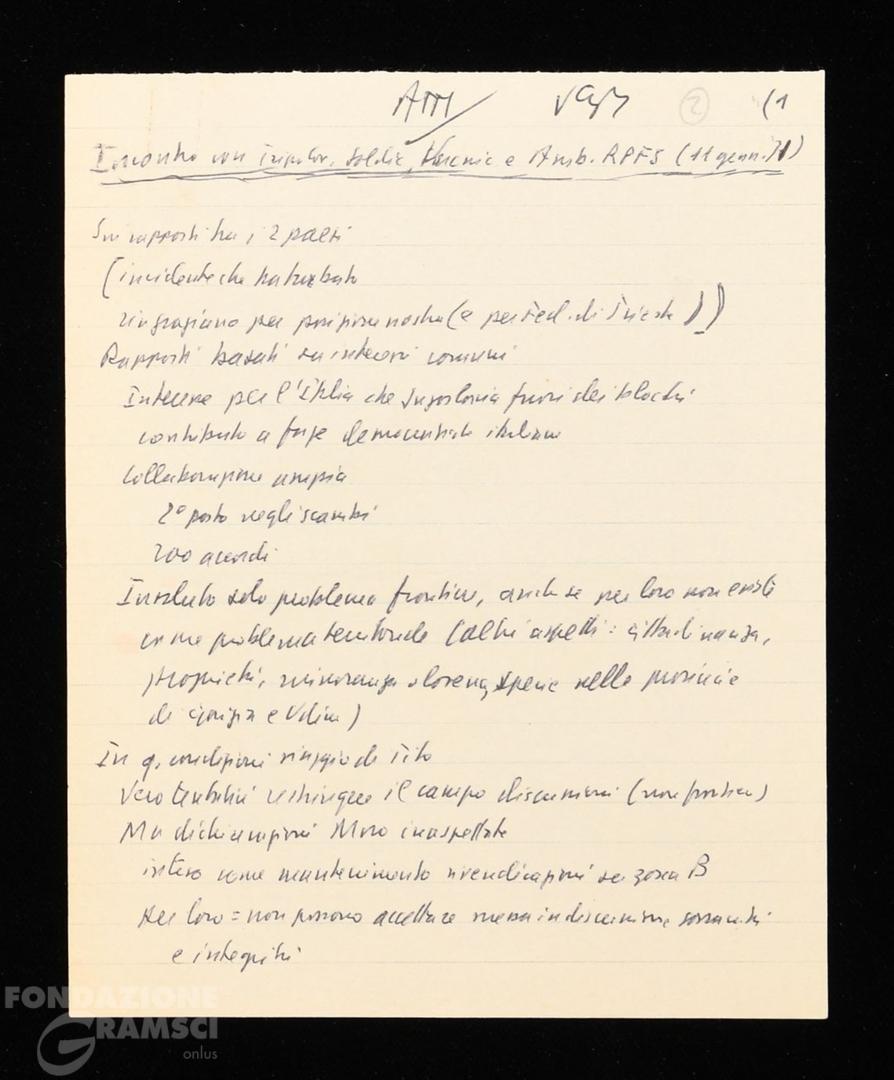 (2) (1
Incontro con e Amb. RPFS (11 genn. 71)
Sui rapporti tra i 2 paesi
(incidente che ha turbato
ringraziano per posizione nostra (e per Fed. di Trieste))
Rapporti basati su interessi comuni
Interesse per l'Italia che Jugoslavia fuori dei blocchi
contributo a forze democratiche italiane
Collaborazione ampia
2° posto negli scambi
200 accordi
Insoluto solo problema frontiere, anche se per loro non esiste
come problema territoriale (altri aspetti: cittadinanza,
minoranza slovena, specie nelle provincie
di Gorizia e Udine)
In q. condizioni viaggio di Tito
restringere il campo discussioni (non frontiere)
Ma dichiarazioni Moro inaspettate
inteso come mantenimento rivendicazioni su zona B
per loro = non possono accettare messa in discussione sovranità
e integrità
FONDAZIONE
GRAMSCI
onlus